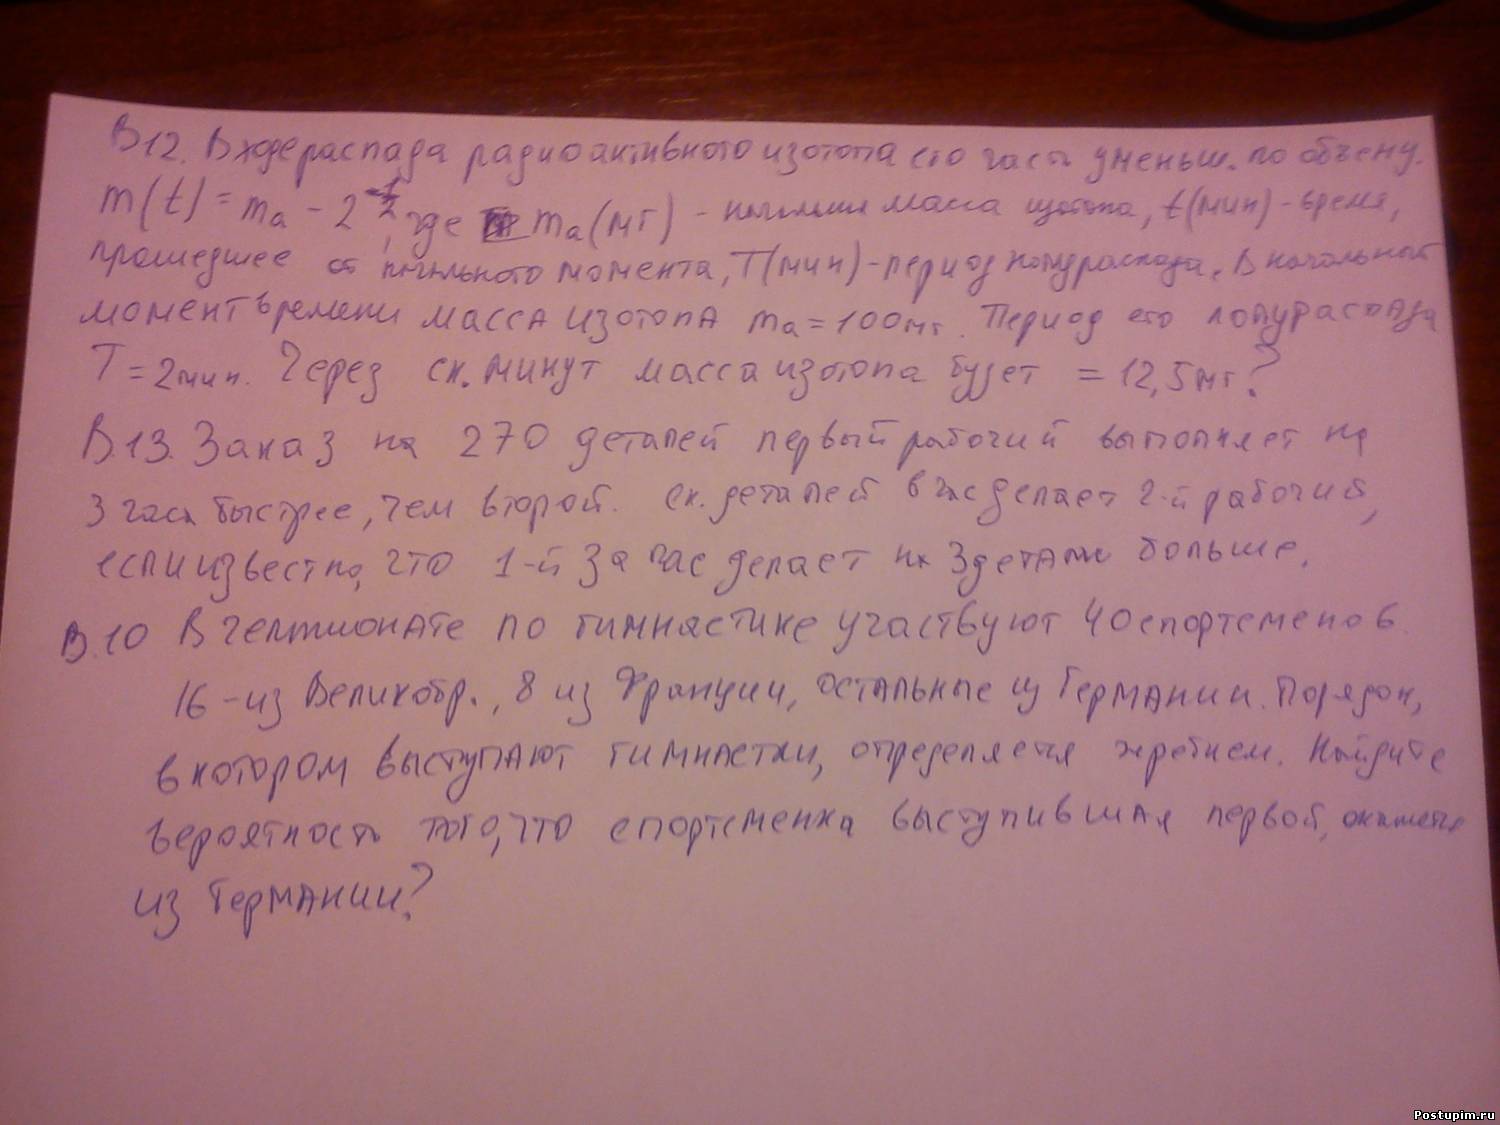 В12. В ходе распада радиоактивного изотопа его часть уменьш. по объему.
m(t) = ma - 2 , где ma(мг) - масса изотопа, t(мин) - время,
прошедшее от момента, T(мин) - период полураспада. В начальный
момент времени масса изотопа ma = 100мг. Период его полураспада
T = 2мин. Через ск. минут масса изотопа будет = 12,5мг?
В.13. Заказ на 270 деталей первый рабочий выполняет на
3 часа быстрее, чем второй. ск. деталей в час делает 2-й рабочий,
если известно, что 1-й за час делает на 3 детали больше.
В.10 В чемпионате по гимнастике участвуют 40 спортсменов
16 - из Великобр., 8 из Франции, остальные из Германии. Порядок,
в котором выступают гимнастки, определяется жребием. Найдите
вероятность того, что спортсменка выступившая первой, окажется
из Германии?
Postupim.ru